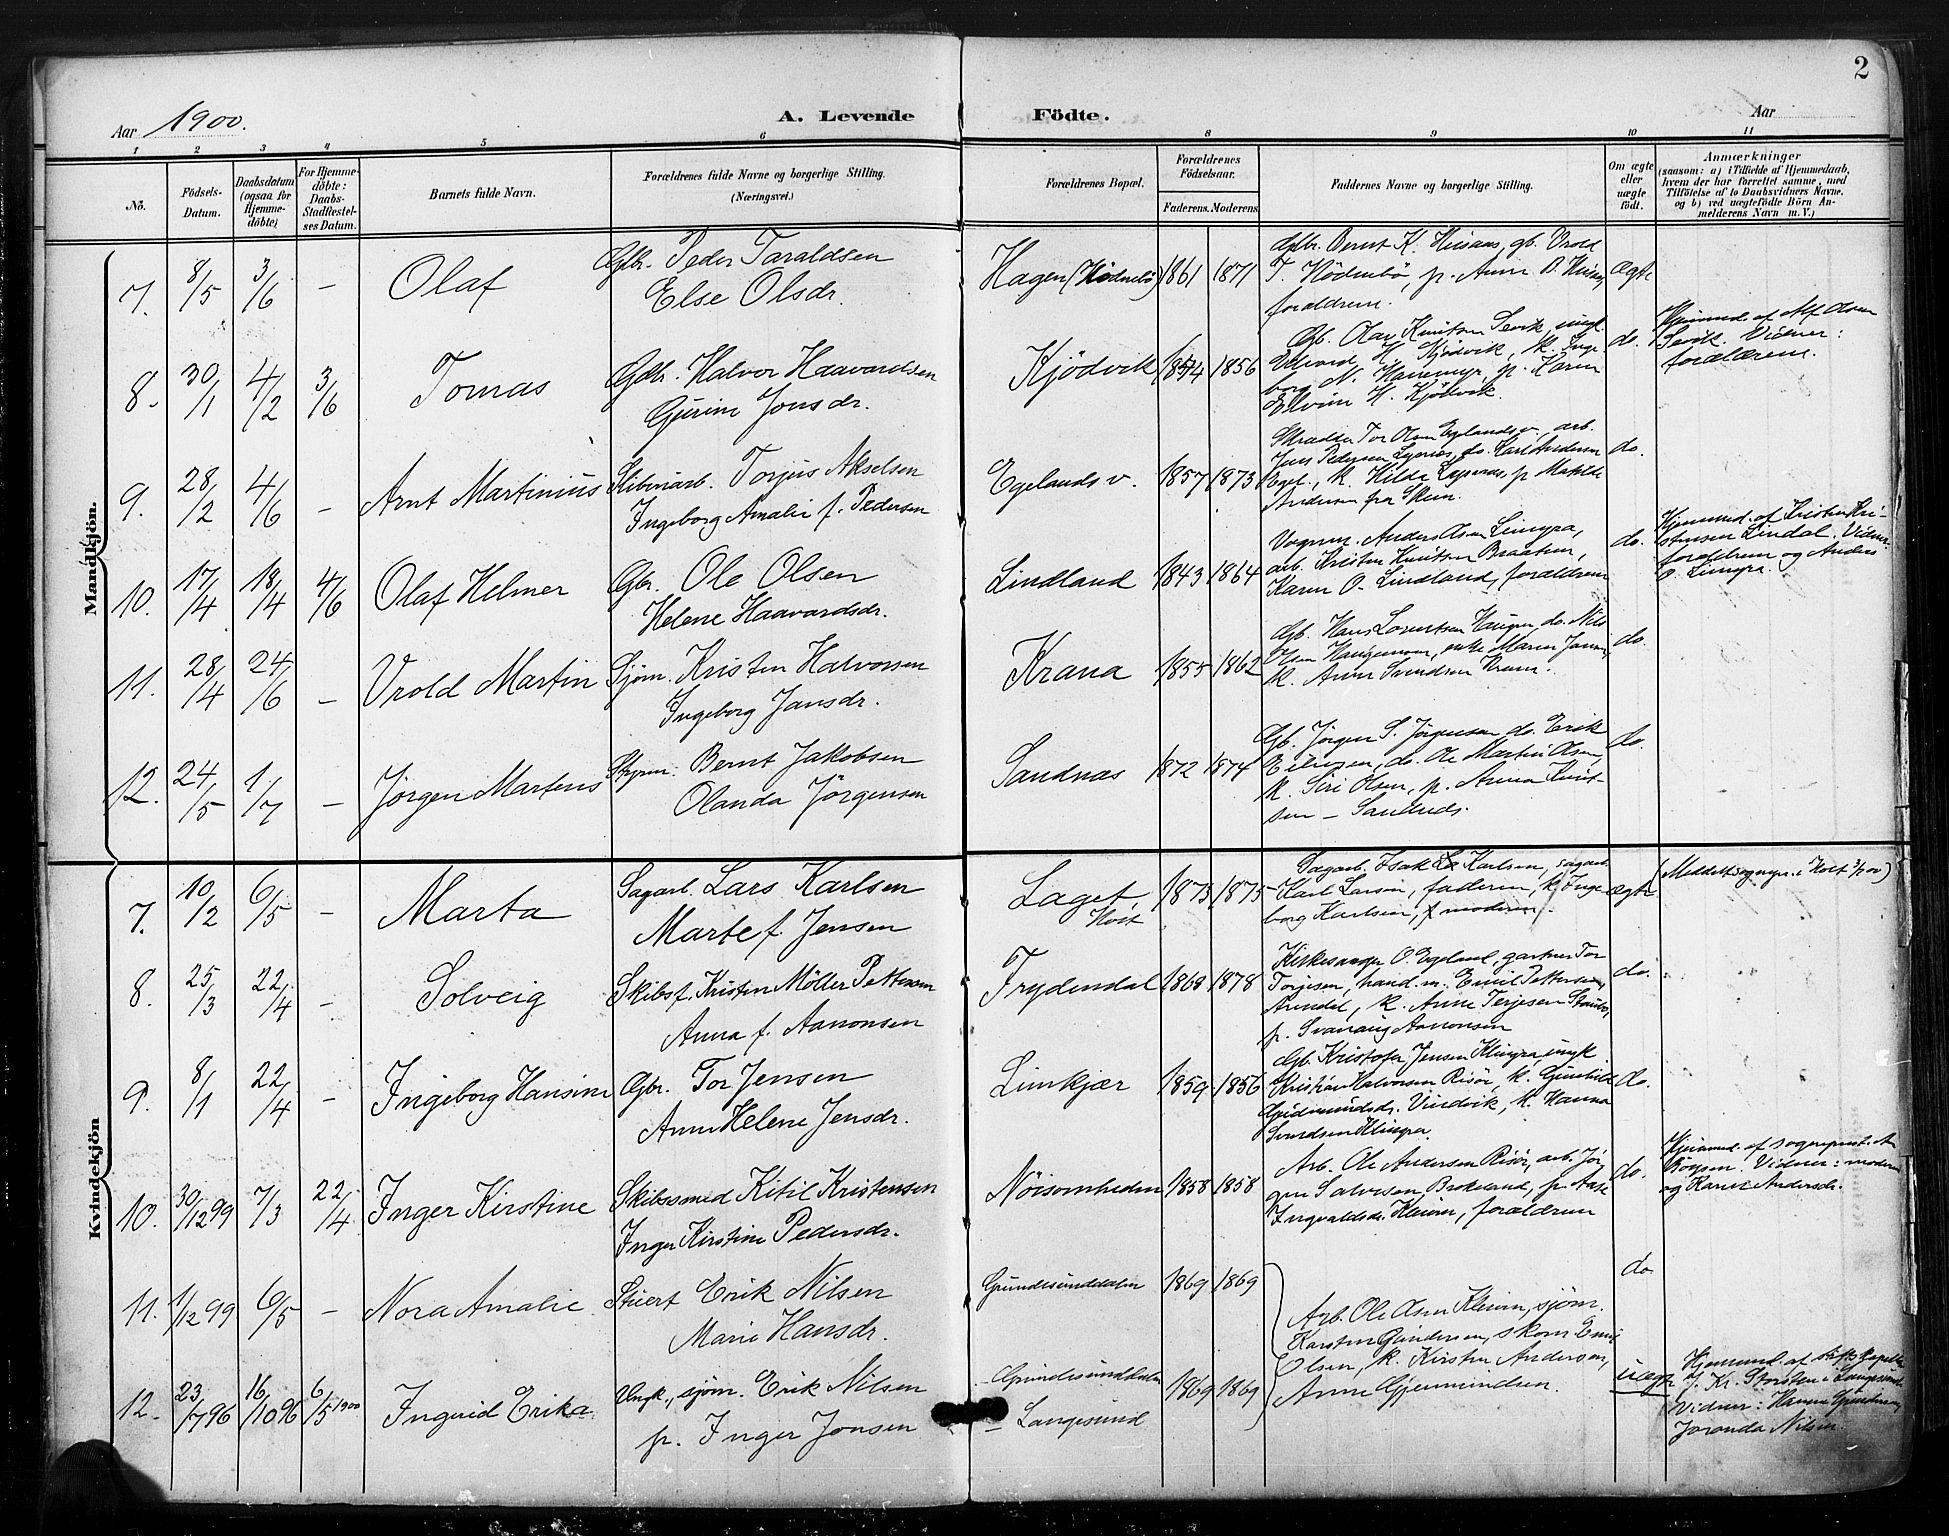 2
Aar 1900.
A. Levende Födte.
Aar
1 2 3 4 5 6 8 9 10 11
No.
Födsels-Datum.
Daabsdatum (ogsaa for Hjemme-döbte)
For Hjemme-döbte: Daabs-Stadfæstel-ses Datum.
Barnets fulde Navn.
Forældrenes fulde Navne og borgerlige Stilling. (Næringsvei.)
Forældrenes Bopæl.
Forældrenes Födselsaar.
Faderens. Moderens.
Faddernes Navne og borgerlige Stilling.
Om ægte eller uægte födt.
Anmærkninger
(saasom: a) i Tilfælde af Hjemmedaab, hvem der har forrettet samme, med Tilföielse af to Daabsvidners Navne. og b) ved uægtefödte Börn An-melderens Navn m. V.)
Mandkjön.
7. 8/5 3/6 – Olaf
Gbr. Peder Taraldsen
Else Olsdr.
Hagen (Hödnebö) 1861 1871
Gbr. Bernt K. Husaas, gb. Vrold
T. Hödnebö, p. Anne
forældrene.
Ægte
8. 30/1 4/2 3/6 Tomas
Gbr. Halvor Haavardsen
Gurine Jonsdr.
Kjödvik 1854 1856
Gb. Olav Knutsen Sevik, ungk.
Edvard H. Kjödvik, k. Inge-
borg N. p. Karen
Elvine H. Kjödvik.
do.
Hjemmed. af Alf Olsen
Sevik. Vidner:
forældrene.
9. 28/2 4/6 – Arnt Martinius
Skibsarb. Torjus Akselsen
Ingeborg Amalie f. Pedersen
Egelands v. 1857 1873
Skrædder Tor Olsen Egelands v. arb.
Jens Pedersen do. Karl Andersen
Egel., k. Hilde p. Matilde
Andersen fra Skien.
do.
10. 17/4 18/4 4/6 Olaf Helmer
Gbr. Ole Olsen
Helene Haavardsdr.
Lindland 1843 1864
Vognm. Anders Olsen Limyra,
arb. Kristen Knutsen Braaten,
Karen O. Lindland, forældrene
do.
Hjemmed. af Kristen Kri-
stensen Lindal. Vidner:
forældrene og Anders
O. Limyra.
11. 28/4 24/6 – Vrold Martin
Sjöm. Kristen Halvorsen
Ingeborg Jansdr.
Krana 1855 1862
Gb. Hans Lorentsen Haugen, do. Nils
enke Maren
k. Anne Svendsen Krana.
do.
12. 24/5 1/7 – Jörgen Martens
Styrm. Bernt Jakobsen
Olanda Jörgensen
Sandnæs 1872 1874
Gb. Jörgen S. Jörgensen do. Erik
do. Ole Martin Olsen,
k. Siri Olsen, p. Anna Knut-
sen – Sandnæs.
do.
Kvindekjön
7. 10/2 6/5 – Marta
Sagarb. Lars Karlsen
Marte f. Jensen
Laget, Holt 1873 1875
Sagarb. Isak Karlsen, sagarb.
Karl Larsen, faderen, k. Inge-
borg Karlsen, moderen.
ægte
(Meddelt sognepr. i Holt 3/7 00)
8. 25/3 22/4 – Solveig
Skibsf. Kristen Möller Pettersen
Anna f. Aanonsen
Frydendal 1868 1878
Kirkesanger O. Egeland, gartner Tor
Torjesen, hand.m. Emil Pettersen,
Arendal, k. Anne Terjesen
p. Svanaug Aanonsen
do.
9. 8/1 22/4 – Ingeborg Hansine
Gbr. Tor Jensen
Anne Helene Jensdr.
Limkjær 1859 1856
Gb. Kristofer Jensen Klimyra, ungk.
Kristian Halvorsen Risör, k. Gunhild
Gudmundsdr. Vindvik, k. Hanna
Svendsen Klimyra.
do.
10. 30/12 99 7/3 22/4 Inger Kirstine
Skibssmed Kitil Kristensen
Inger Kirstine Pedersdr.
Nöisomheden 1858 1858
Arb. Ole Andersen Risör, arb. Jör-
gen Salvesen Brokeland, p. Aase
Ingvaldsdr. Kleven, forældrene
do.
Hjemmed. af sogneprest A.
Bögsen. Vidner: moderen
og Karen Andersdr.
11. 1/12 99 6/5 – Nora Amalie
Stuert Erik Nilsen
Marie Hansdr.
Grundesunddalen 1869 1869
do.
Arb. Ole Olsen Kleven, sjöm.
Karsten Gundersen, skom. Emil
Olsen, k. Kirsten Andersen,
Anne Gjermundsen.
12. 23/7 96 16/10 96 6/5 1900 Ingrid Erika
Ungk., sjöm. Erik Nilsen
p. Inger Jonsen
Grundesunddalen
– Langesund 1869 1869
uægte
Hjemmed. af
J. Kr. Storsten i Langesund.
Vidner: Hanna
Joranda Nilsen.